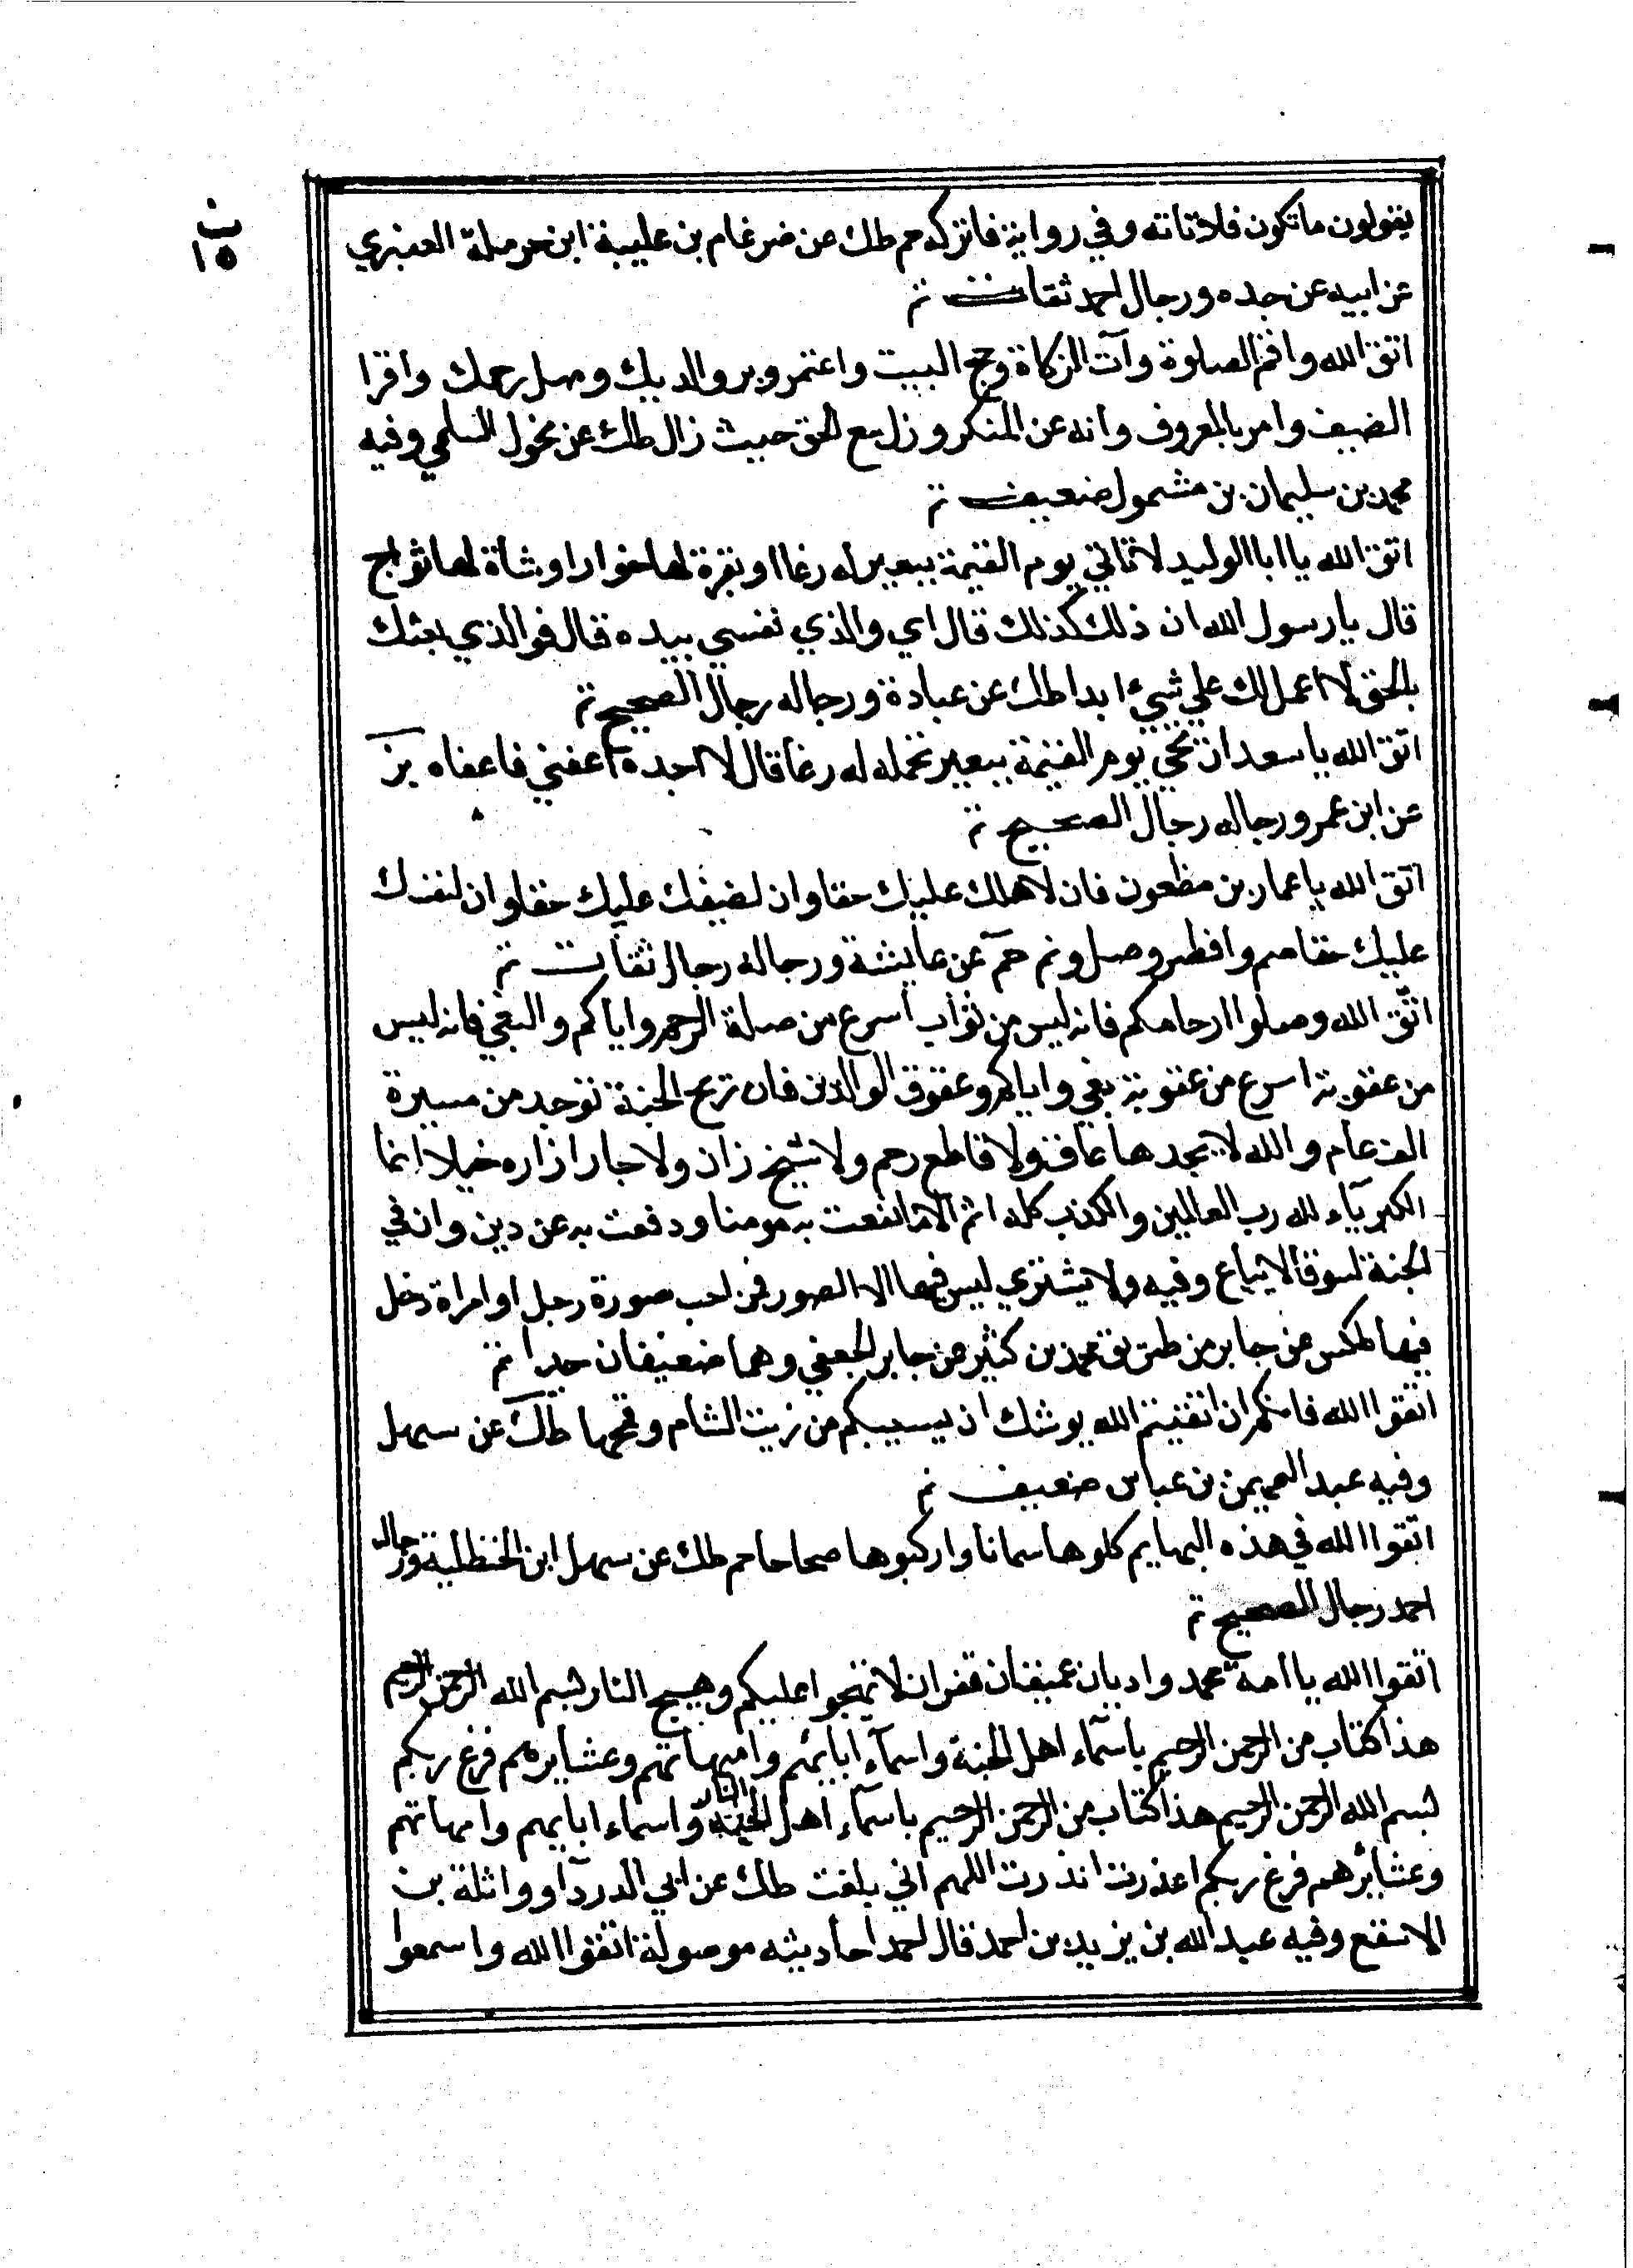 ب
١٥
يقولون ما تكون فلا تاته وفي رواية فاتركه حم طك عن ضرغام بن عليبة ابن حرملة العنبري
عن ابيه عن جده ورجال احمد ثقات تم
اتق الله واقم الصلوة وآت الزكاة وحج البيت واعتمر وبر والديك وصل رحمك واقرا
الضيف وامر بالمعروف وانه عن المنكر وزل مع الحق حيث زال طك عن مخول السلمي وفيه
محمد بن سليمان بن مشمول ضعيف تم
اتق الله يا ابا الوليد لا تاتي يوم القيمة ببعير له رغا او بقرة لها خوار او شاة لها ثواج
قال يا رسول الله ان ذلك كذلك قال اي والذي نفسي بيده قال فوالذي بعثك
بالحق لا اعمل لك علي شيء ابدا طك عن عبادة ورجاله رجال الصحيح تم
اتق الله يا سعد ان تجي يوم القيمة ببعير تحمله له رغا قال لا اجده اعفني فاعفاه بز
عن ابن عمر ورجاله رجال الصحيح تم
اتق الله يا عمار بن مظعون فان لاهلك عليك حقا وان لضيفك عليك حقا وان لنفسك
عليك حقا صم وافطر وصل ونم حم عن عايشة ورجاله رجال ثقات تم
اتق الله وصلوا ارحامكم فانه ليس من ثواب اسرع من صلة الرحم واياكم والبغي فانه ليس
من عقوبة اسرع من عقوبة بغي واياكم وعقوق الوالدين فان ريح الجنة توجد من مسيرة
الف عام والله لا يجدها عاق ولا قاطع رحم ولا شيخ زان ولا جار ازاره خيلا انما
الكبرياء لله رب العالمين والكذب كله اثم الا ما نفعت به مومنا ودفعت به عن دين وان في
الجنة لسوقا لا يباع وفيه ولا يشتري ليس فيها الا الصور فمن احب صورة رجل او امراة دخل
فيها طكس عن جابر من طريق محمد بن كثير عن جابر الجعفي وهما ضعيفان جدا تم
اتقوا الله فانكم ان اتقيتم الله يوشك ان يسيبكم من زيت الشام وقمحها طك عن سهل
وفيه عبد المهيمن بن عباس ضعيف تم
اتقوا الله في هذه البهايم كلوها سمانا واركبوها صحاحا حم طك عن سهل ابن الحنظلية ورجال
احمد رجال الصحيح تم
اتقوا الله يا امة محمد واديان عميقان قفران لا تهجوا عليكم وهيج النار بسم الله الرحمن الرحيم
هذا كتاب من الرحمن الرحيم باسماء اهل الجنة واسماء ابايهم وامهاتهم وعشايرهم فرغ ربكم
بسم الله الرحمن الرحيم هذا كتاب من الرحمن الرحيم باسماء اهل النار واسماء ابايهم وامهاتهم
وعشايرهم فرغ ربكم اعذرت انذرت اللهم اني بلغت طك عن ابي الدرداو وواثلة بن
الاسقع وفيه عبد الله بن يزيد بن احمد قال احمد احاديثه موصولة اتقوا الله واسمعوا